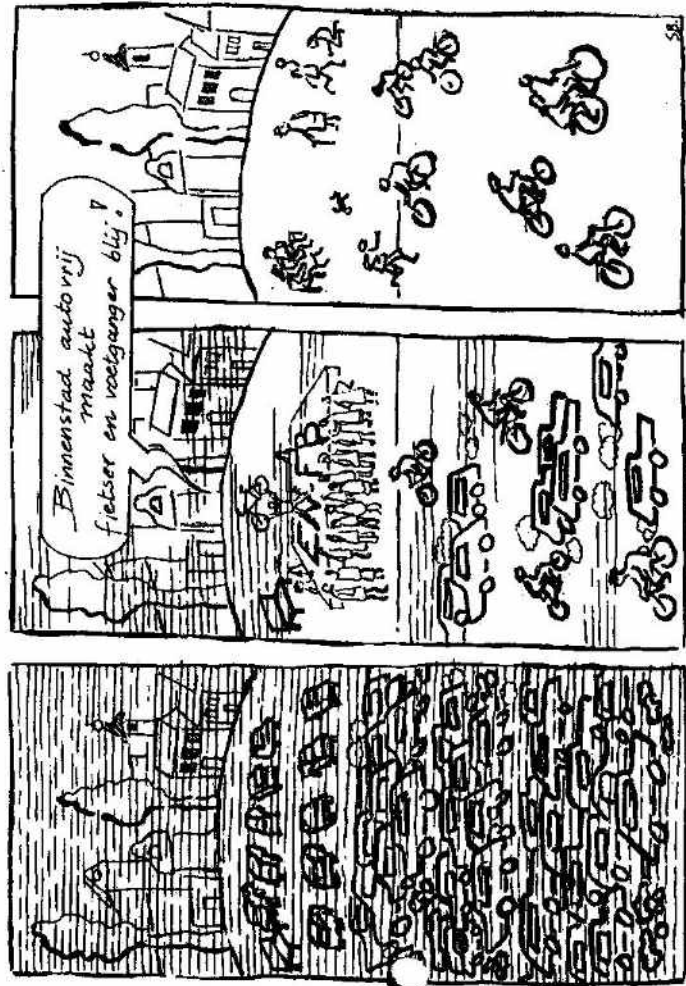 Binnenstad autovrij
maakt
fietser en voetganger blij!
S.B.